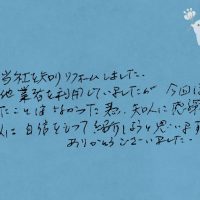 当社を知りリフォームしました。
他業者を利用していましたが 今回は
たことはなかった為、知人に
人に自信をもって紹介しようと思います
ありがとうございました。